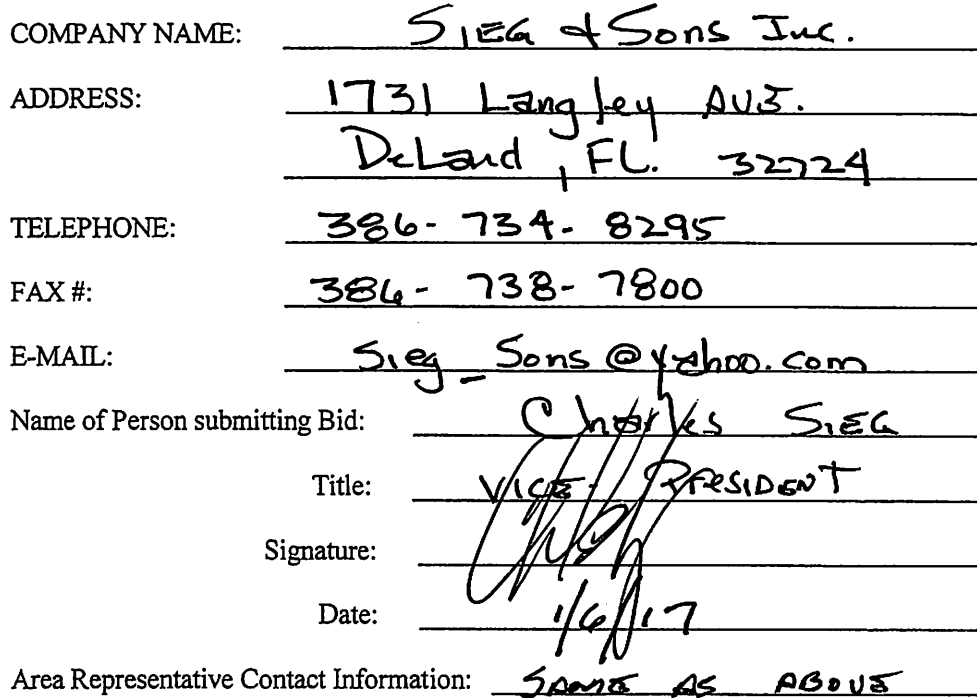 COMPANY NAME: SIEG & Sons Inc.
ADDRESS: 1731 Langley AVE.
DeLand, FL. 32724
TELEPHONE: 386-734-8295
FAX #: 386-738-7800
E-MAIL: Sieg_Sons@yahoo.com
Name of Person submitting Bid: Charles SIEG
Title: VICE-PRESIDENT
Signature:
Date: 1/6/17
Area Representative Contact Information: SAME AS ABOVE